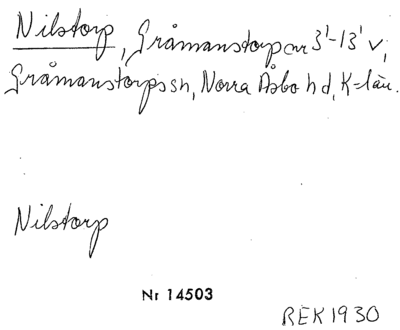 Nilstorp, Gråmanstorp nr 3¹-13¹ v,
Gråmanstorps sn, Norra Åsbo hd, K-län.
Nilstorp
Nr 14503
REK 1930